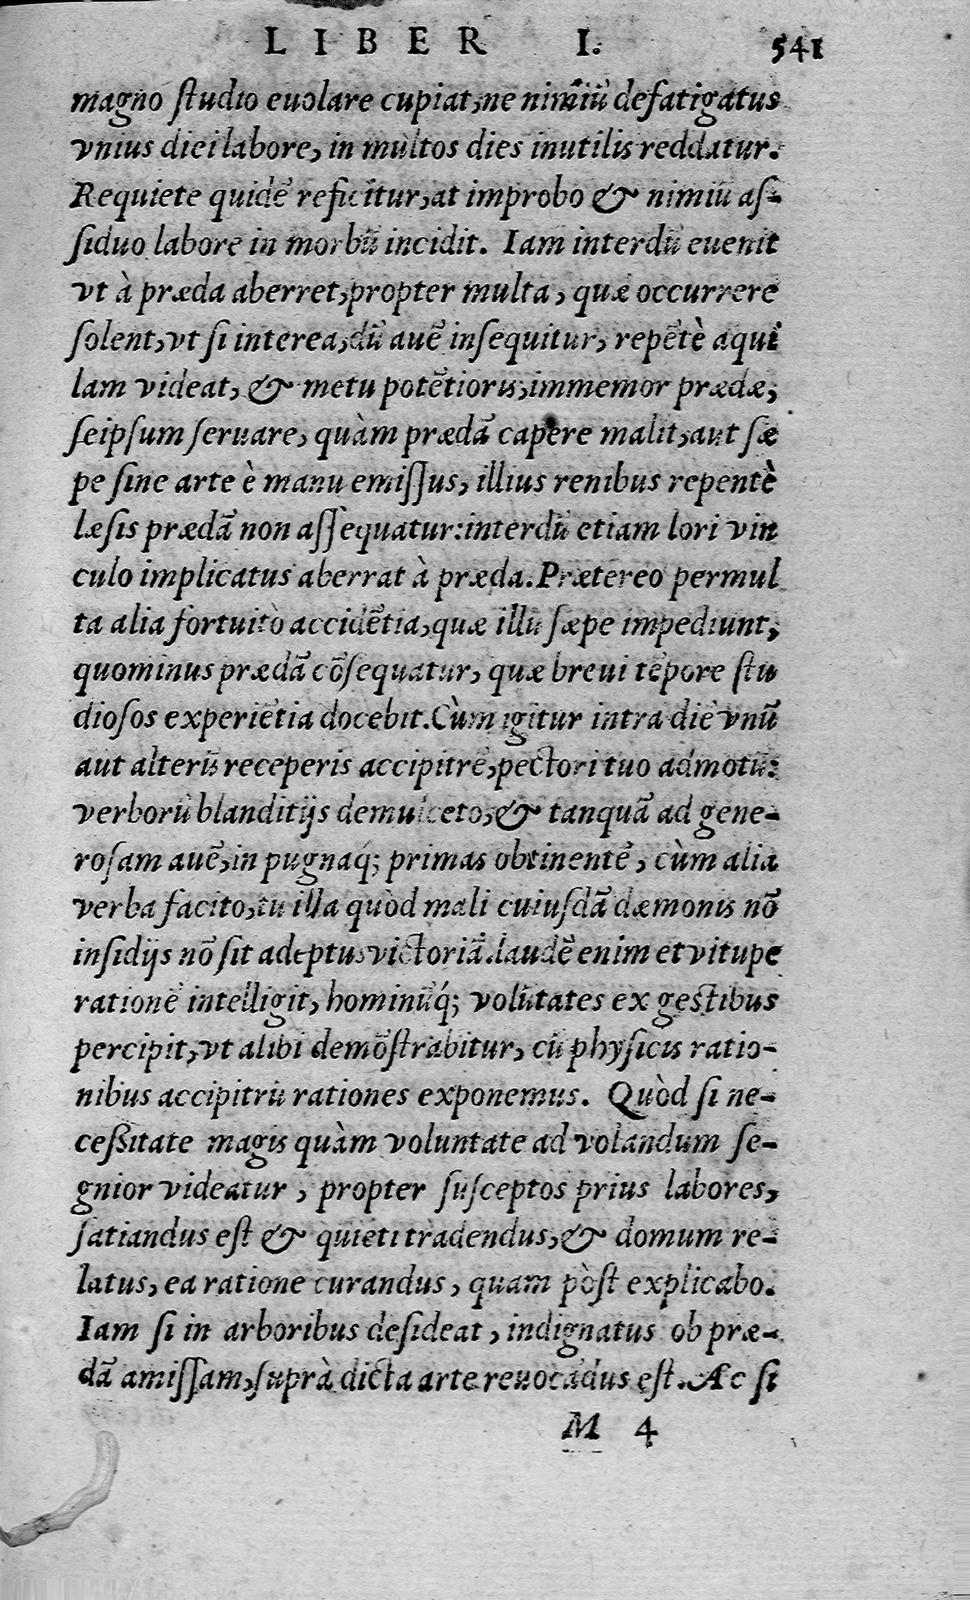 LIBER I. 541
magno ſtudio euolare cupiat, ne nimiū defatigatus
vnius diei labore, in multos dies inutilis reddatur.
Requiete quidē reficitur, at improbo & nimiū aſ-
ſiduo labore in morbū incidit. Iam interdū euenit
vt à præda aberret, propter multa, quæ occurrere
ſolent, vt ſi interea, dū auē inſequitur, repētè aqui
lam videat, & metu potētioris, immemor prædæ,
ſeipſum ſeruare, quàm prædā capere malit, aut ſæ
pe ſine arte è manu emiſſus, illius renibus repentè
læſis prædā non aſſequatur: interdū etiam lori vin
culo implicatus aberrat à præda. Prætereo permul
ta alia fortuitò accidētia, quæ illū ſæpe impediunt,
quominus prædā cōſequatur, quæ breui tēpore ſtu
dioſos experiētia docebit. Cùm igitur intra diē vnū
aut alterū receperis accipitrē, pectori tuo admotū:
verborū blanditijs demulceto, & tanquā ad gene-
roſam auē, in pugnaq́; primas obtinentē, cùm alia
verba facito, tu illa quòd mali cuiuſdā dæmonis nō
inſidijs nō ſit adeptus victoriā. laudē enim et vitupe
rationē intelligit, hominūq́; volūtates ex geſtibus
percipit, vt alibi demōſtrabitur, cū phyſicis ratio-
nibus accipitrū rationes exponemus. Quòd ſi ne-
ceßitate magis quàm voluntate ad volandum ſe-
gnior videatur, propter ſuſceptos prius labores,
ſatiandus eſt & quieti tradendus, & domum re-
latus, ea ratione curandus, quam pòſt explicabo.
Iam ſi in arboribus deſideat, indignatus ob præ-
dā amiſſam, ſuprà dicta arte reuocādus eſt. Ac ſi
M 4